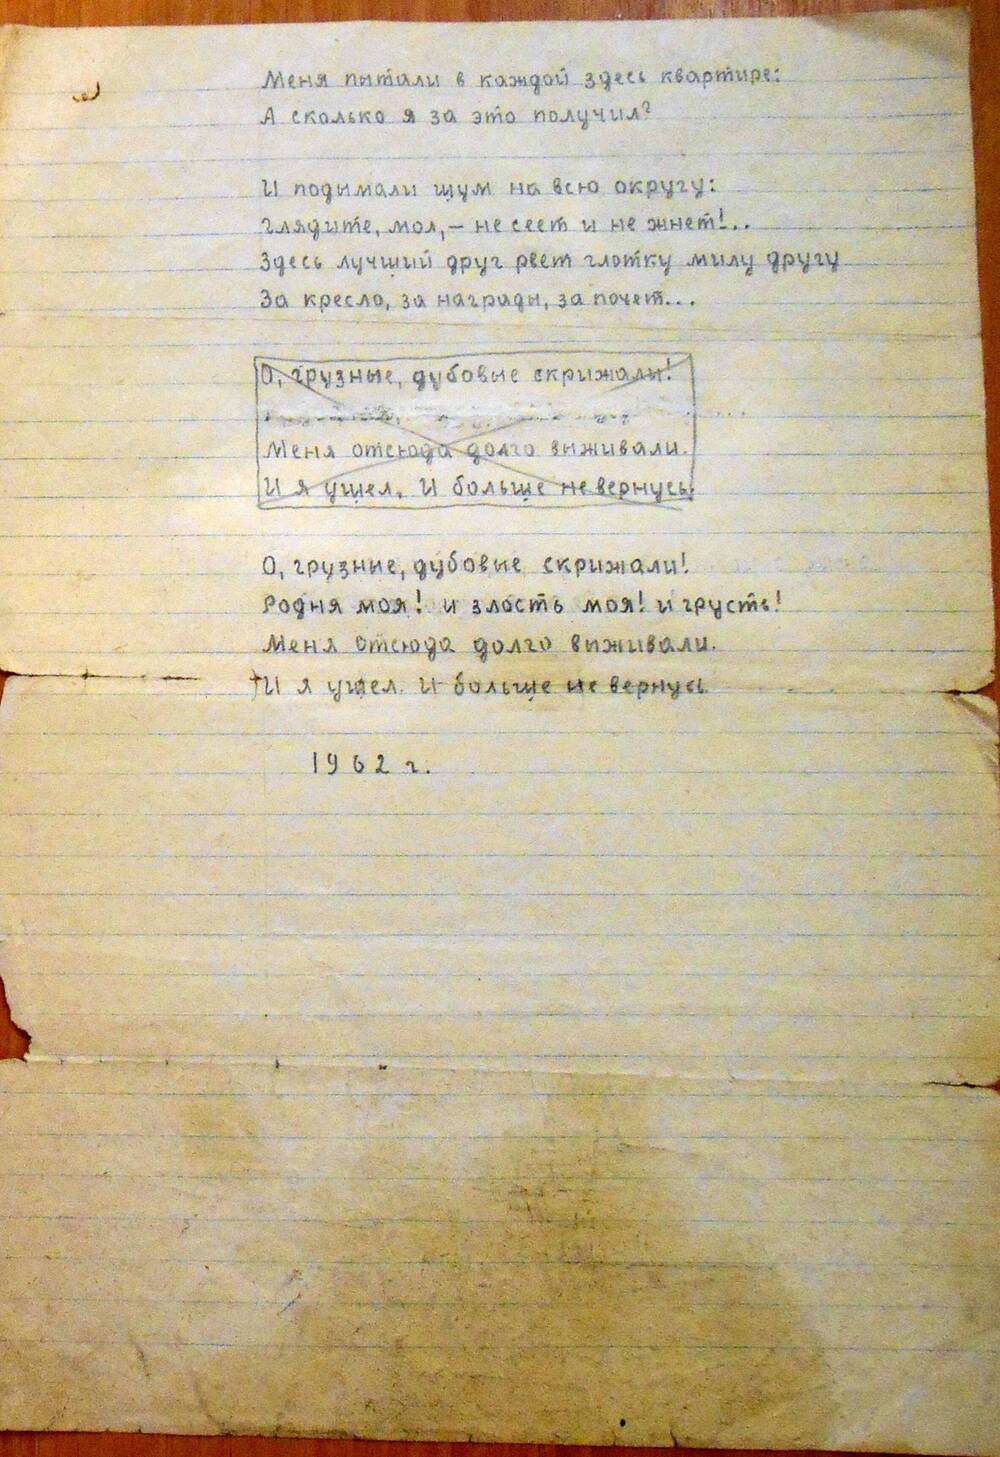 Меня пытали в каждой здесь квартире:
А сколько я за это получил?
И подымали шум на всю округу:
Глядите, мол,– не сеет и не жнет!..
Здесь лучший друг рвет глотку милу другу
За кресло, за награды, за почет...
О, грузные, дубовые скрижали!
Меня отсюда долго выживали.
И я ушел. И больше не вернусь.
О, грузные, дубовые скрижали!
Родня моя! и злость моя! и грусть!
Меня отсюда долго выживали.
И я ушел. И больше не вернусь
1962 г.